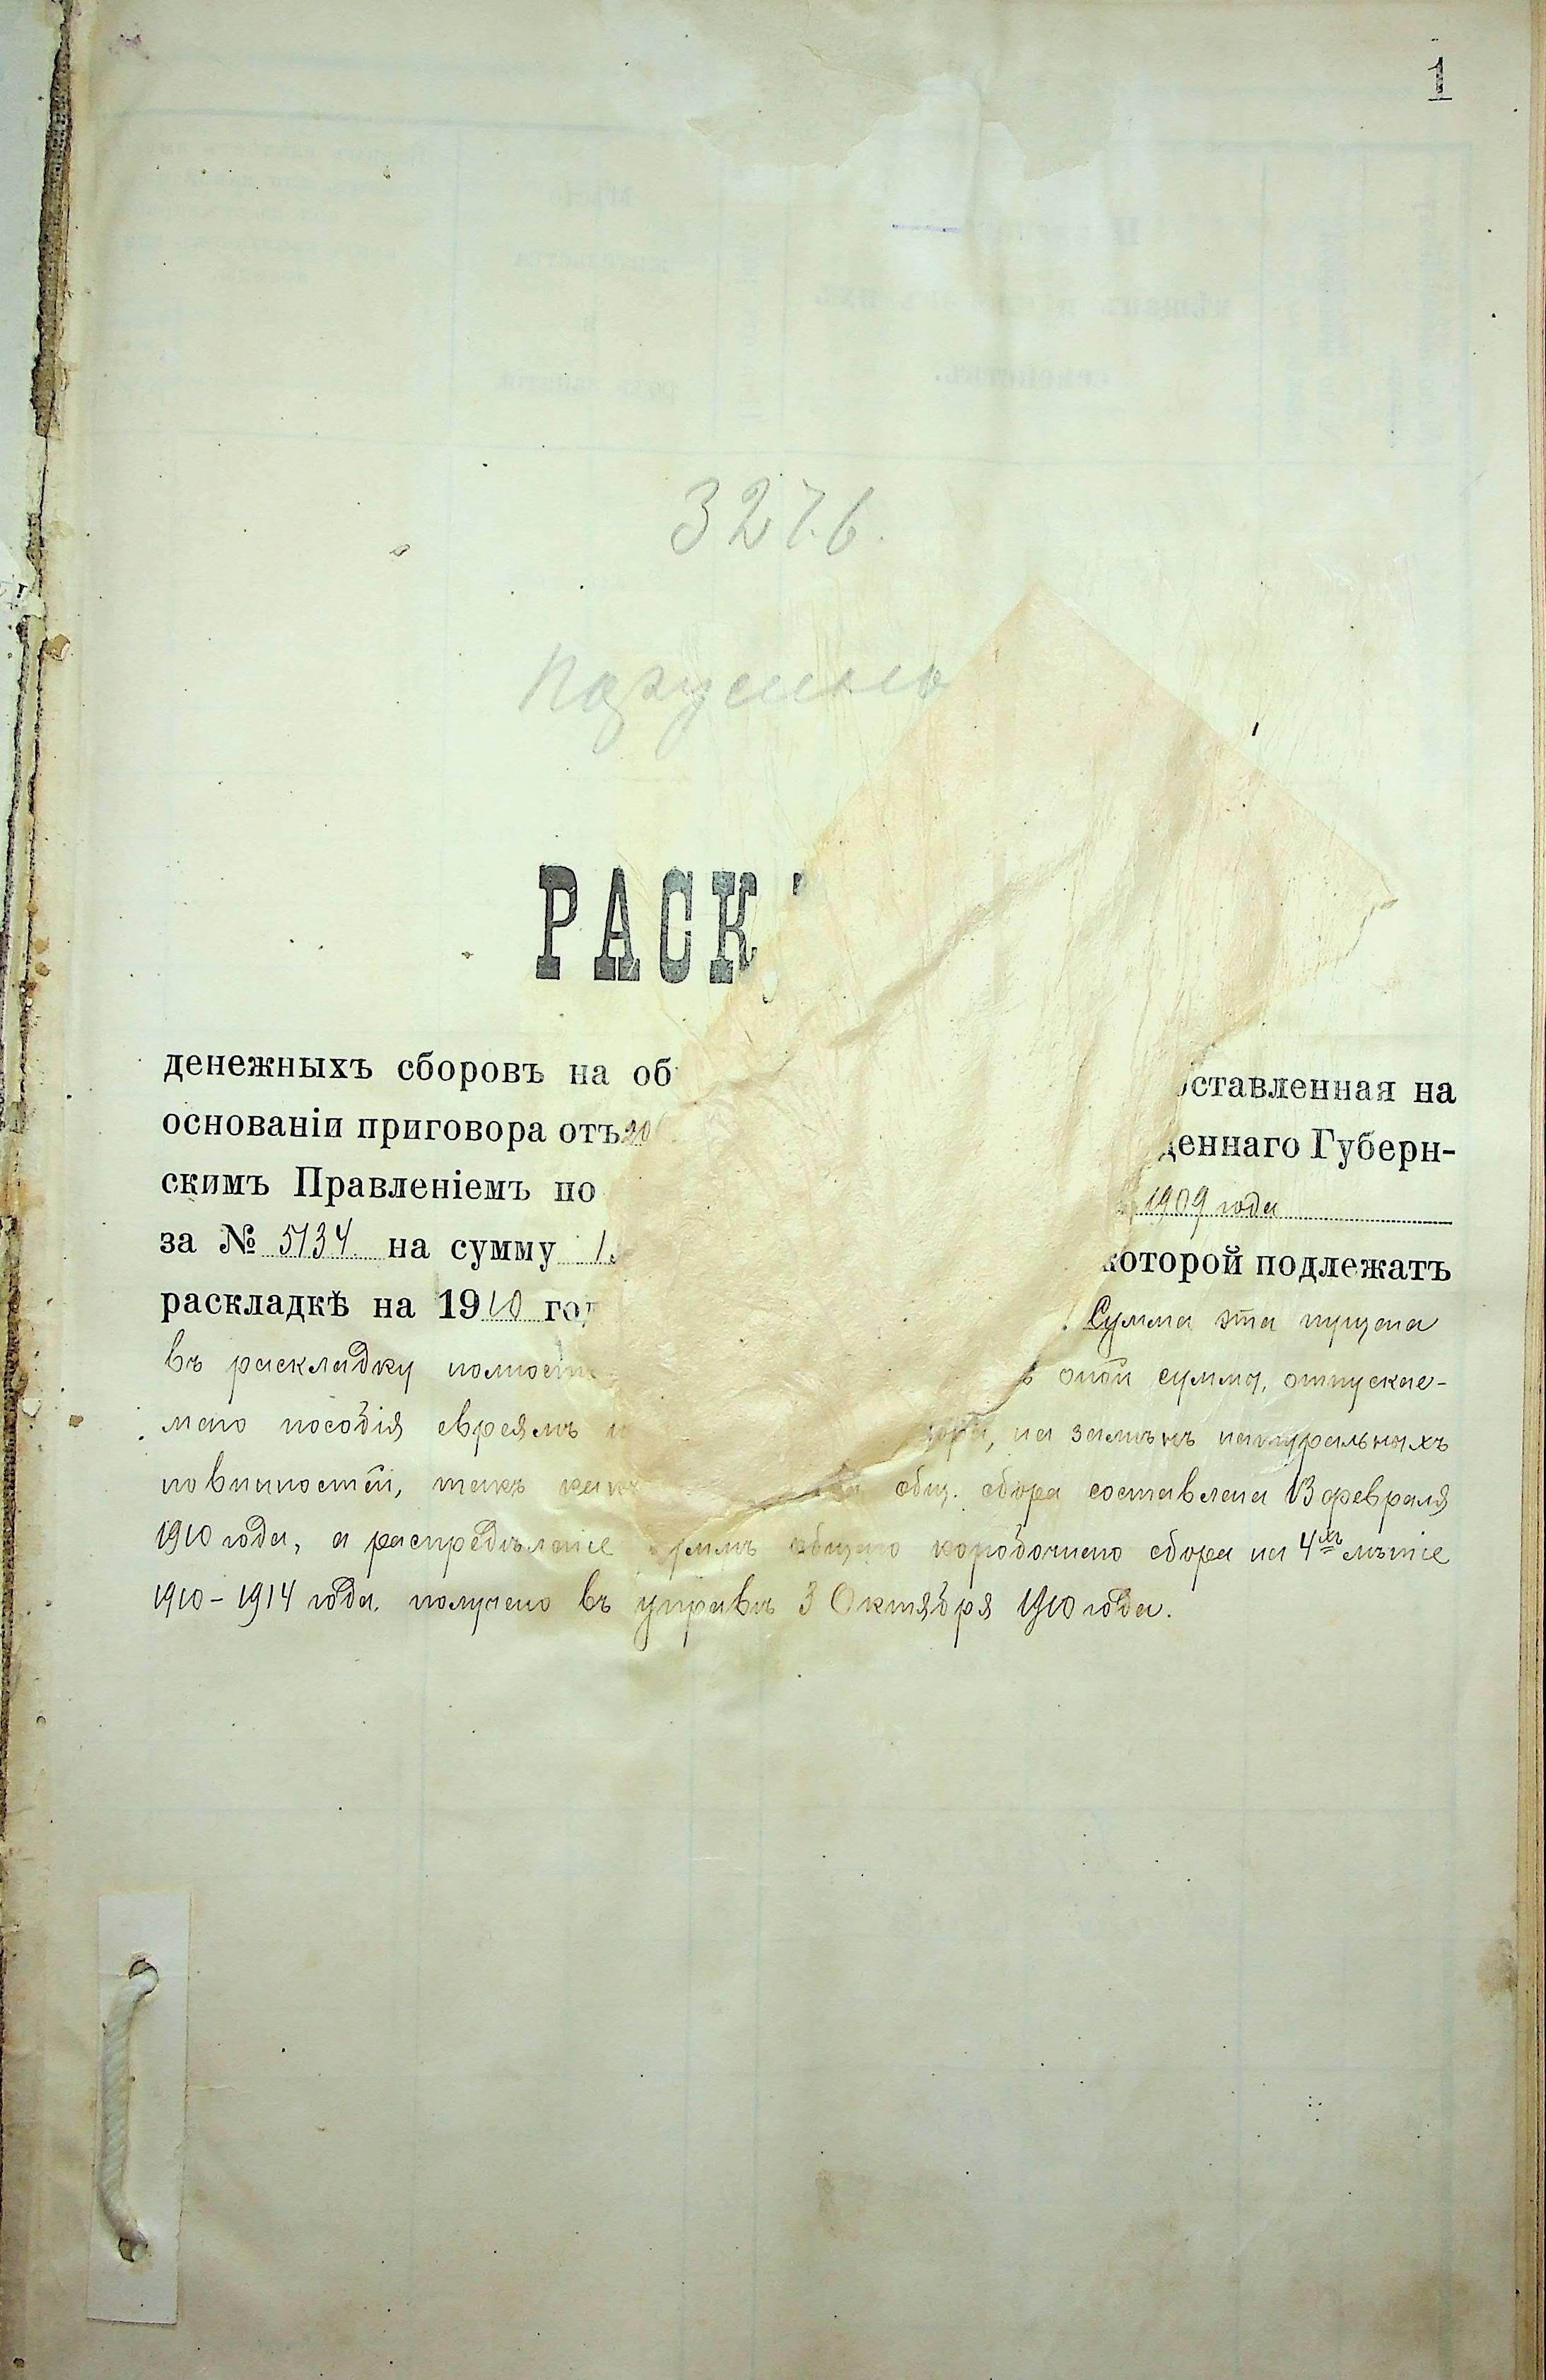 1
327.б.
РАСК
денежныхъ сборовъ на об ставленная на
основаніи приговора отъ 20 деннаго Губерн-
скимъ Правленіемъ по 1909 года
за № 5134 на сумму 1 которой подлежатъ
раскладкѣ на 1910 год Сумма эта пущена
въ раскладку полност оной сумма, отпускае-
маго пособія евреямъ на замѣнъ натуральныхъ
повинностей, такъ какъ общ. сбора составлена 13 февраля
1910 года, а распредѣленіе суммъ общаго коробочнаго сбора на 4хъ лѣтіе
1910-1914 года. получено въ управѣ 3 Октября 1910 года.